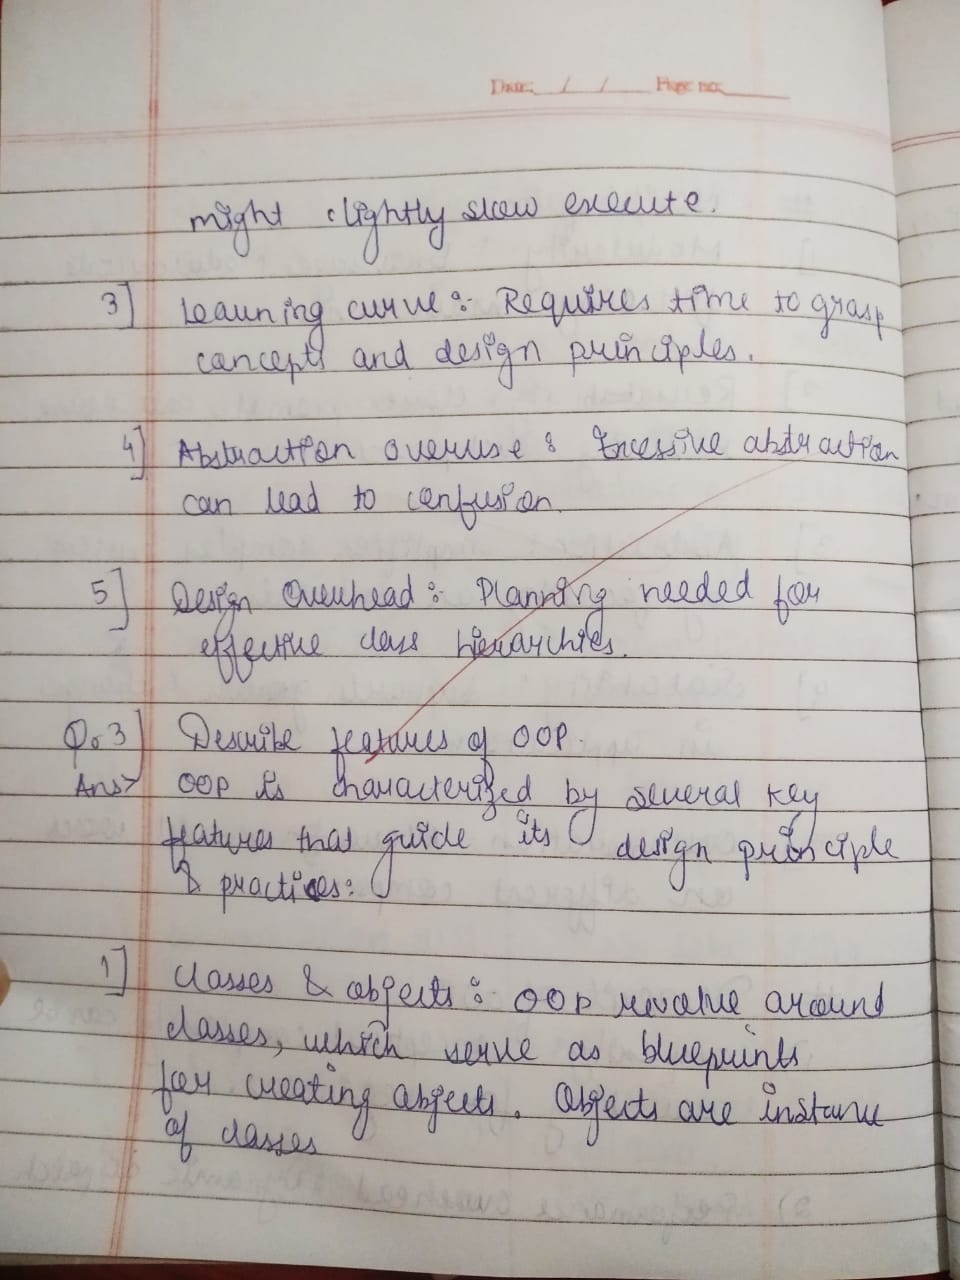 Date: / / Page no:
might slightly slow execute.
3] Learning curve :- Requires time to grasp
concepts and design principles.
4] Abstraction overuse : Excessive abstraction
can lead to confusion.
5] Design Overhead :- Planning needed for
effective class hierarchies.
Q.3] Describe features of OOP.
Ans> OOP is characterized by several key
features that guide its design principle
& practices:
1] Classes & objects :- OOP revolve around
classes, which serve as blueprints
for creating objects. Objects are instance
of classes